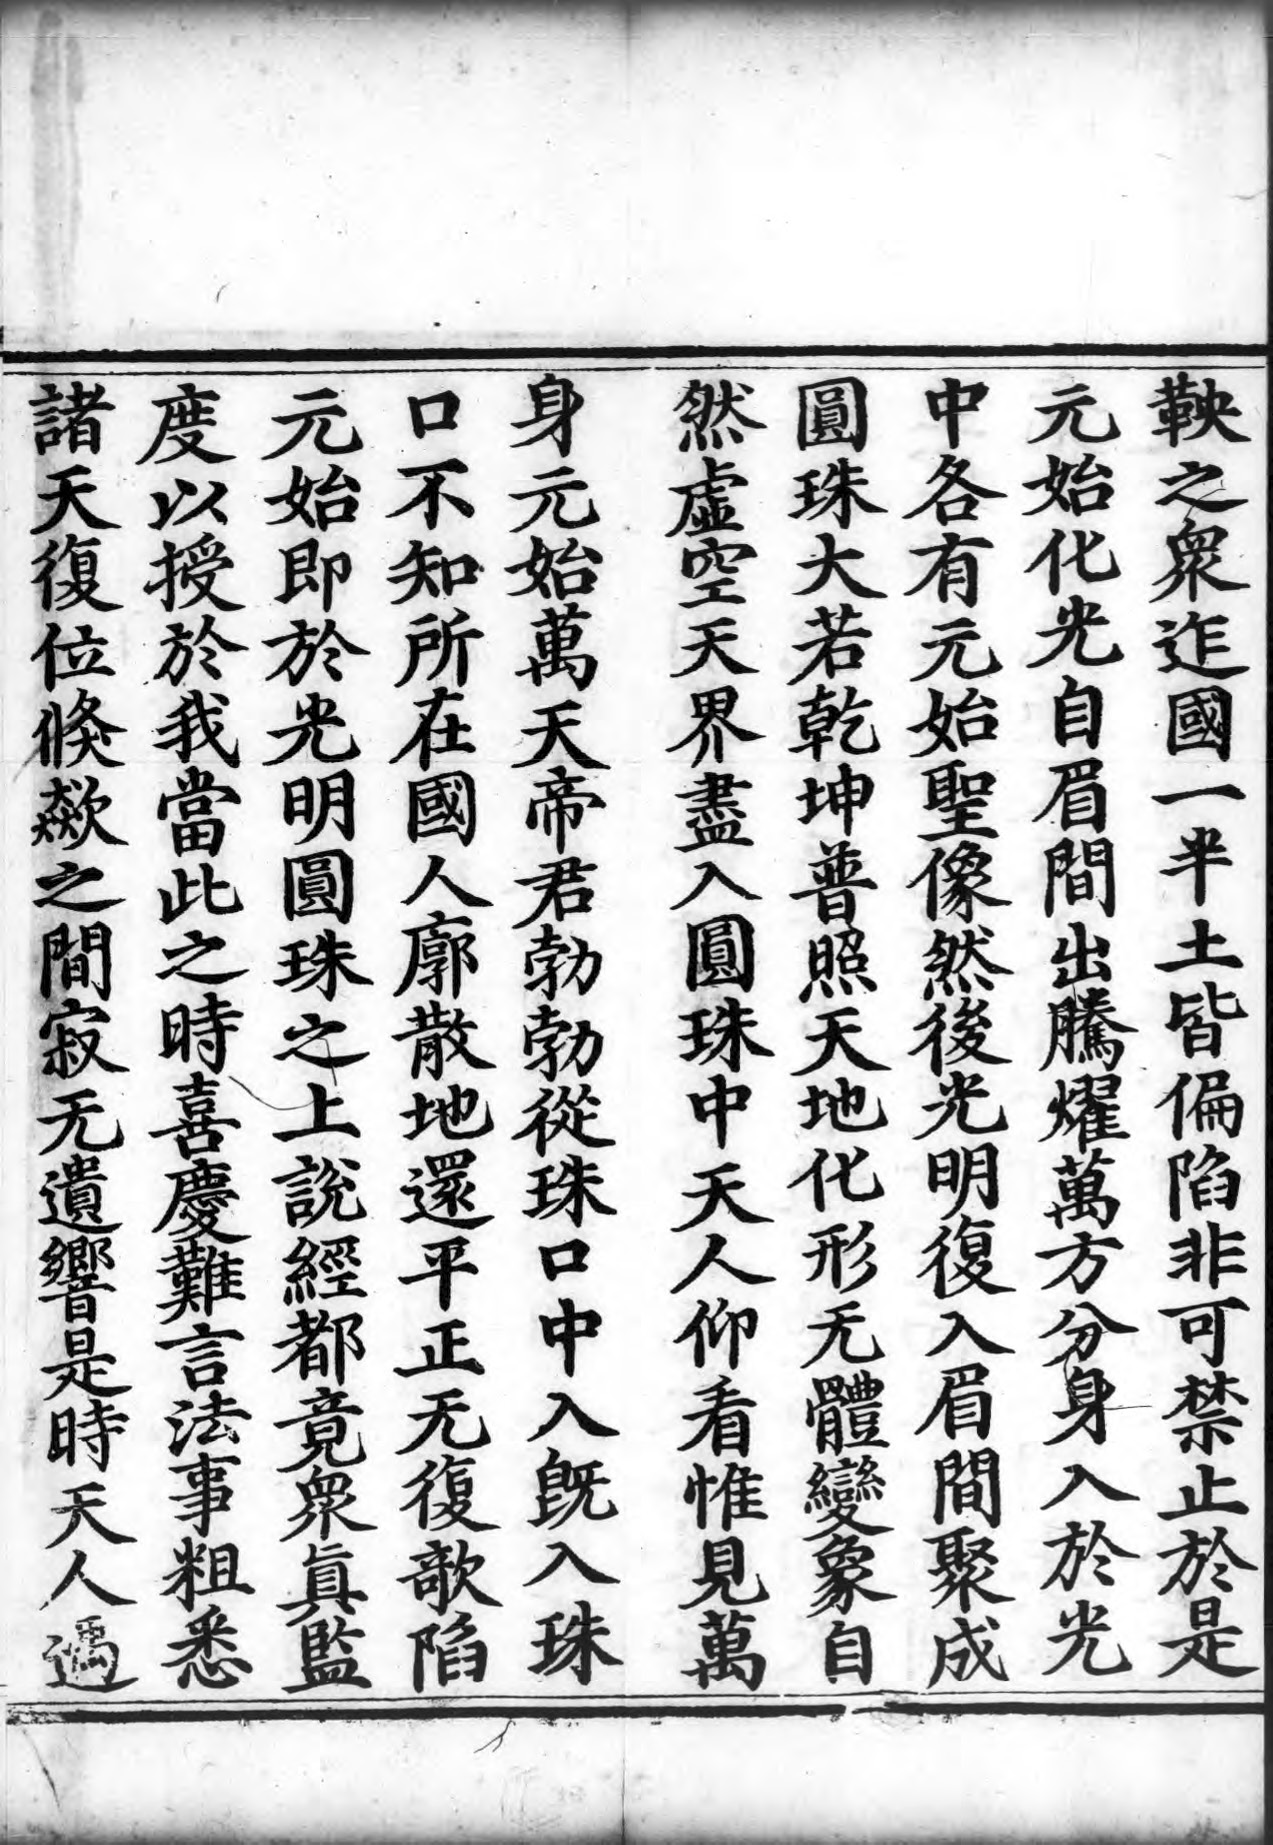 鞅之衆迮國一半土皆偏陷非可禁止於是
元始化光自眉間出騰燿萬方分身入於光
中各有元始聖像然後光明復入眉間聚成
圓珠大若乾坤普照天地化形无體變象自
然虛空天界盡入圓珠中天人仰看惟見萬
身元始萬天帝君勃勃從珠口中入旣入珠
口不知所在國人廓散地還平正无復欹陷
元始即於光明圓珠之上說經都竟衆眞監
度以授於我當此之時喜慶難言法事粗悉
諸天復位倏歘之間寂无遺響是時天人遇